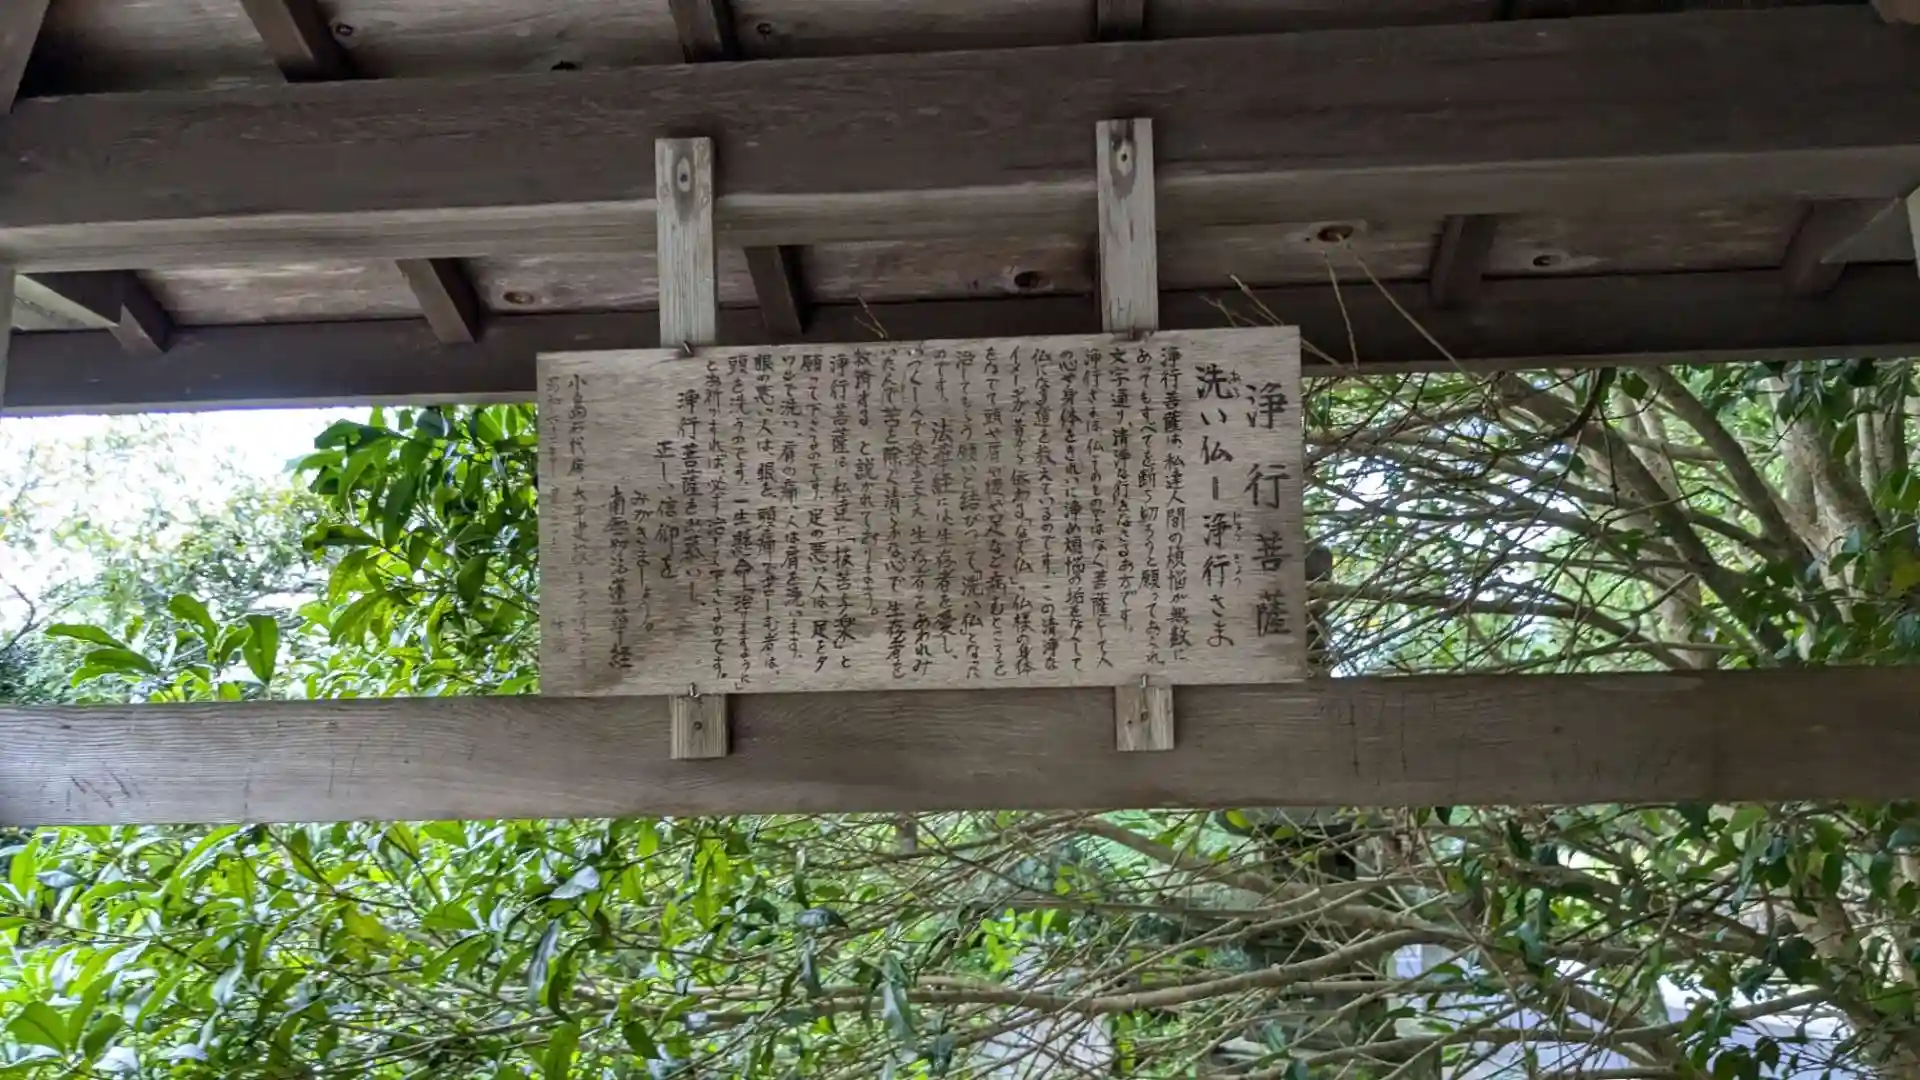 浄行菩薩
洗い仏ー浄行さま
あら じょう ぎょう
浄行菩薩は、私達人間の煩悩が無数に
あってもすべてを断ち切ろうと願っておられ
文字通り清浄な行をなさるお方です。
浄行さまは仏そのものではなく菩薩として人
の心や身体をきれいに浄め煩悩の垢をなくして
仏になる道を教えているのです。この清浄な
イメージが昔から伝わる「なで仏」仏様の身体
をなでて頭や肩、腰や足など病むところを
治してもらう願いと結びついて「洗い仏」となった
のです。法華経には生存者を愛し、
いつくしんで楽を与え生存者をあわれみ
いたんで苦を除く清らかな心で生存者を
救済すると説かれております。
浄行菩薩は私達に「抜苦与楽」と
願って下さるのです。足の悪い人は、足をタ
ワシで洗い、肩の痛い人は肩を洗います。
眼の悪い人は、眼を、頭痛で苦しむ者は、
頭を洗うのです。一生懸命「治りますように」
と祈りすれば必ず治して下さるのです。
浄行菩薩をお慕いし、
正しい信仰を
みがきましょう。
南無妙法蓮華経